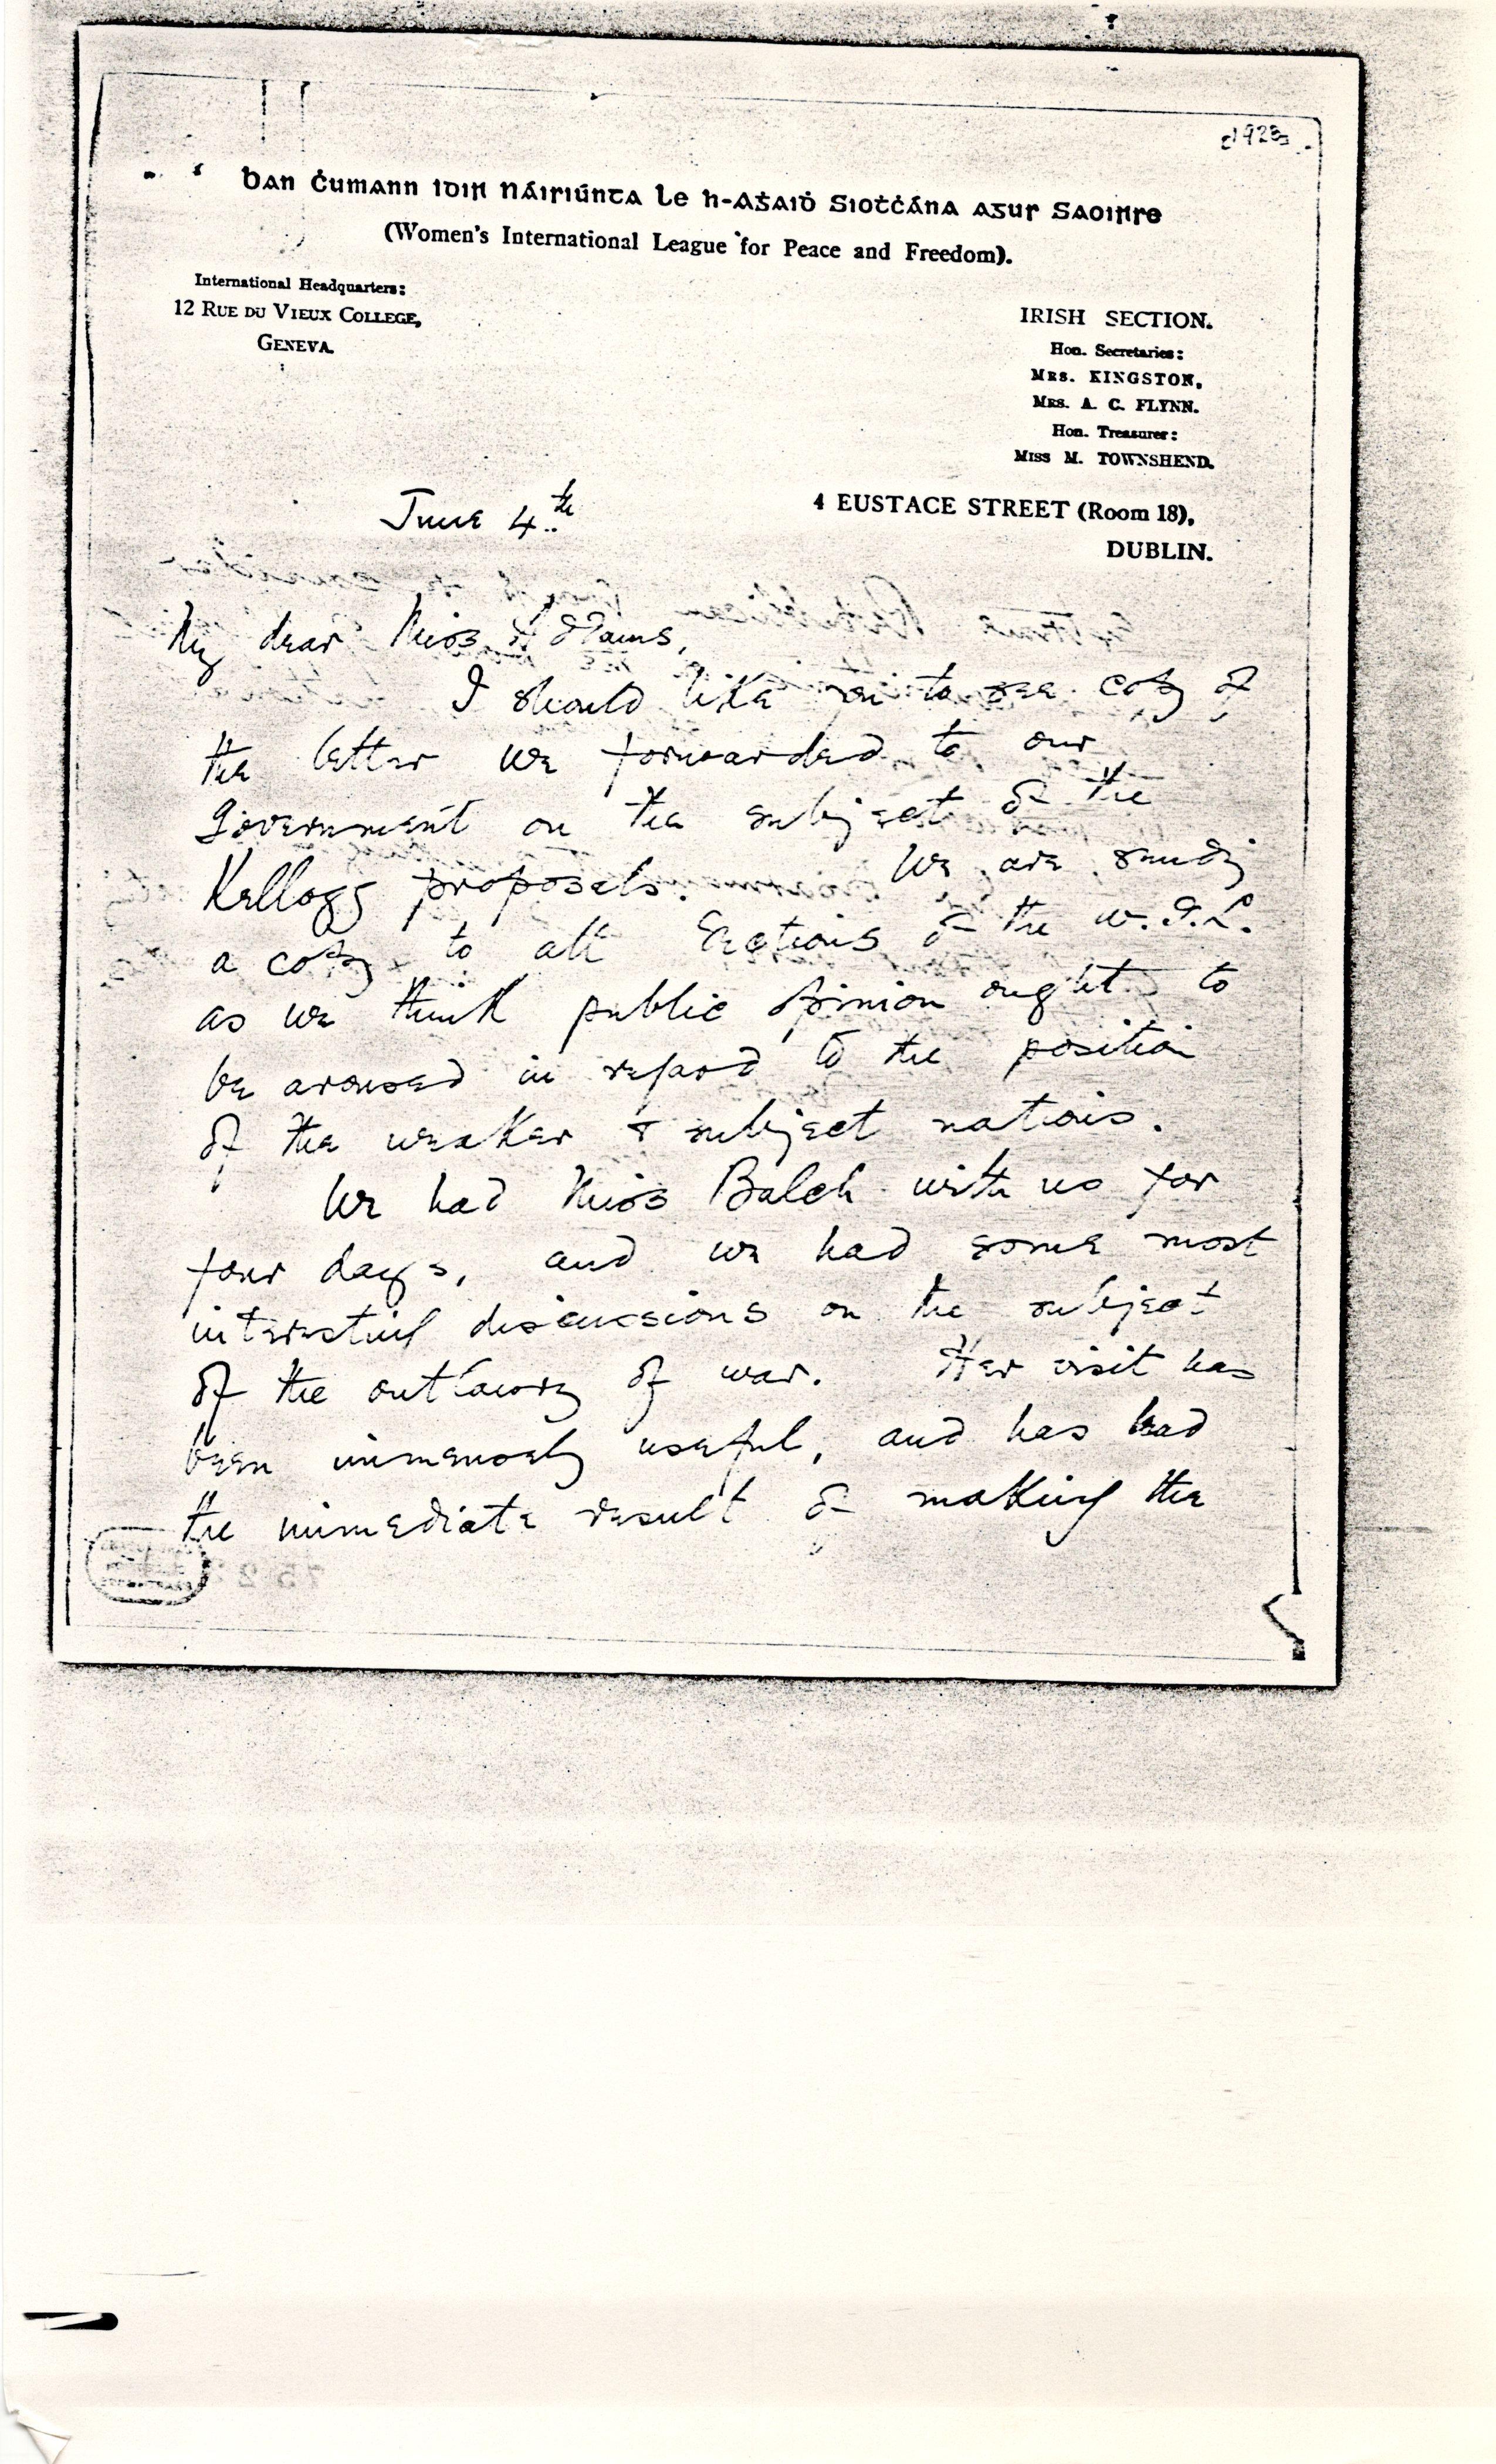 [1928]
Ban Ċumann Idir Náisiúnta le h-Aġaiḋ Síoṫċána agus Saoirse
(Women's International League for Peace and Freedom).
International Headquarters:
12 Rue du Vieux College,
Geneva.
IRISH SECTION.
Hon. Secretaries:
Mrs. KINGSTON.
Mrs. A. C. FLYNN.
Hon. Treasurer:
Miss M. TOWNSHEND.
4 EUSTACE STREET (Room 18),
DUBLIN.
June 4th
My dear Miss Addams,
I should like you to see copy of
the letter we forwarded to our
Government on the subject of the
Kellogg proposals. We are sending
a copy to all Sections of the W.I.L.
as we think public opinion ought to
be aroused in regard to the position
of the weaker & subject nations.
We had Miss Balch with us for
four days, and we had some most
interesting discussions on the subject
of the outlawry of war. Her visit has
been immensely useful, and has had
the immediate result of making the